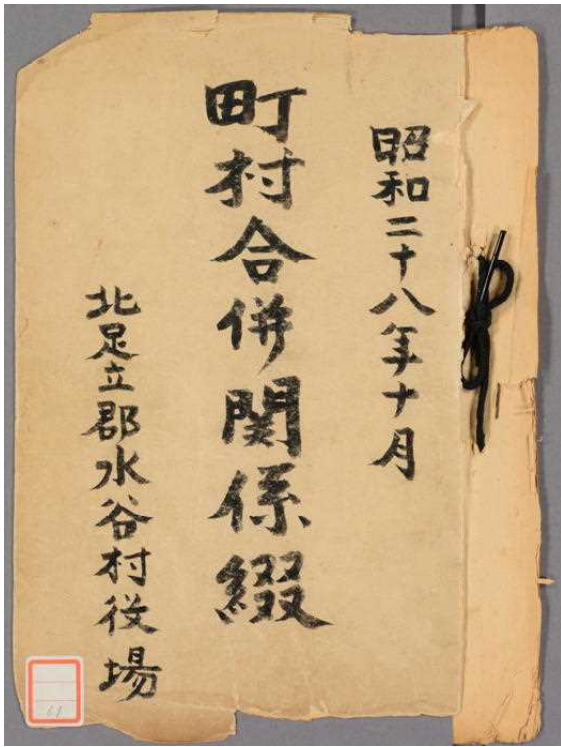 昭和二十八年十月
町村合併関係綴
北足立郡水谷村役場
61